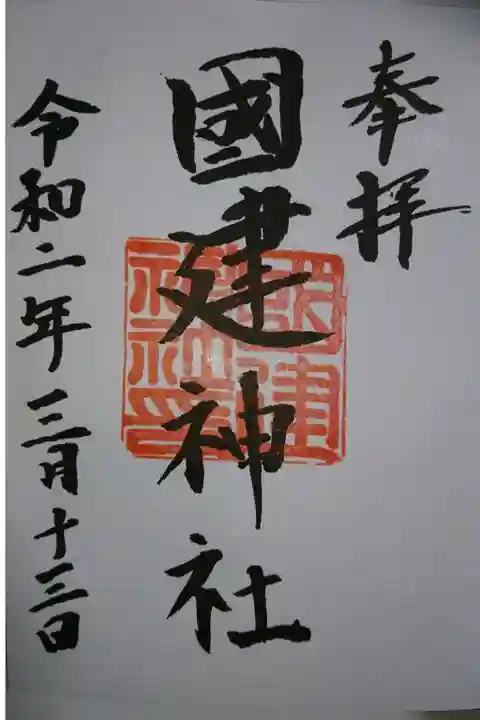 奉拝
國建神社
國建
神社印
令和二年三月十三日